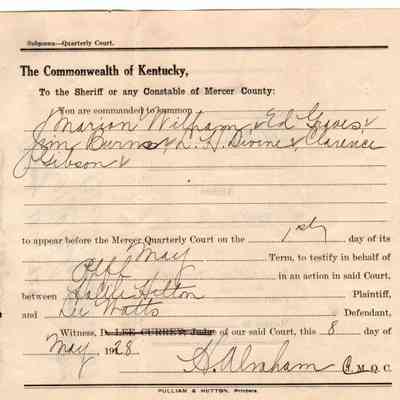 Subpoena—Quarterly Court.
The Commonwealth of Kentucky,
To the Sheriff or any Constable of Mercer County:
You are commanded to summon
Marion Witham & Ed Graves &
Jim Burns & L. H. Divine & Clarence
Gibson &
to appear before the Mercer Quarterly Court on the 1st day of its
May Term, to testify in behalf of
Plff in an action in said Court,
between Hallie Hilton Plaintiff,
and Lee Watts Defendant,
Witness, D. LEE CURREY, Judge of our said Court, this 8 day of
May 1928
H. Abraham C. M. Q. C.
PULLIAM & HUTTON, Printers.